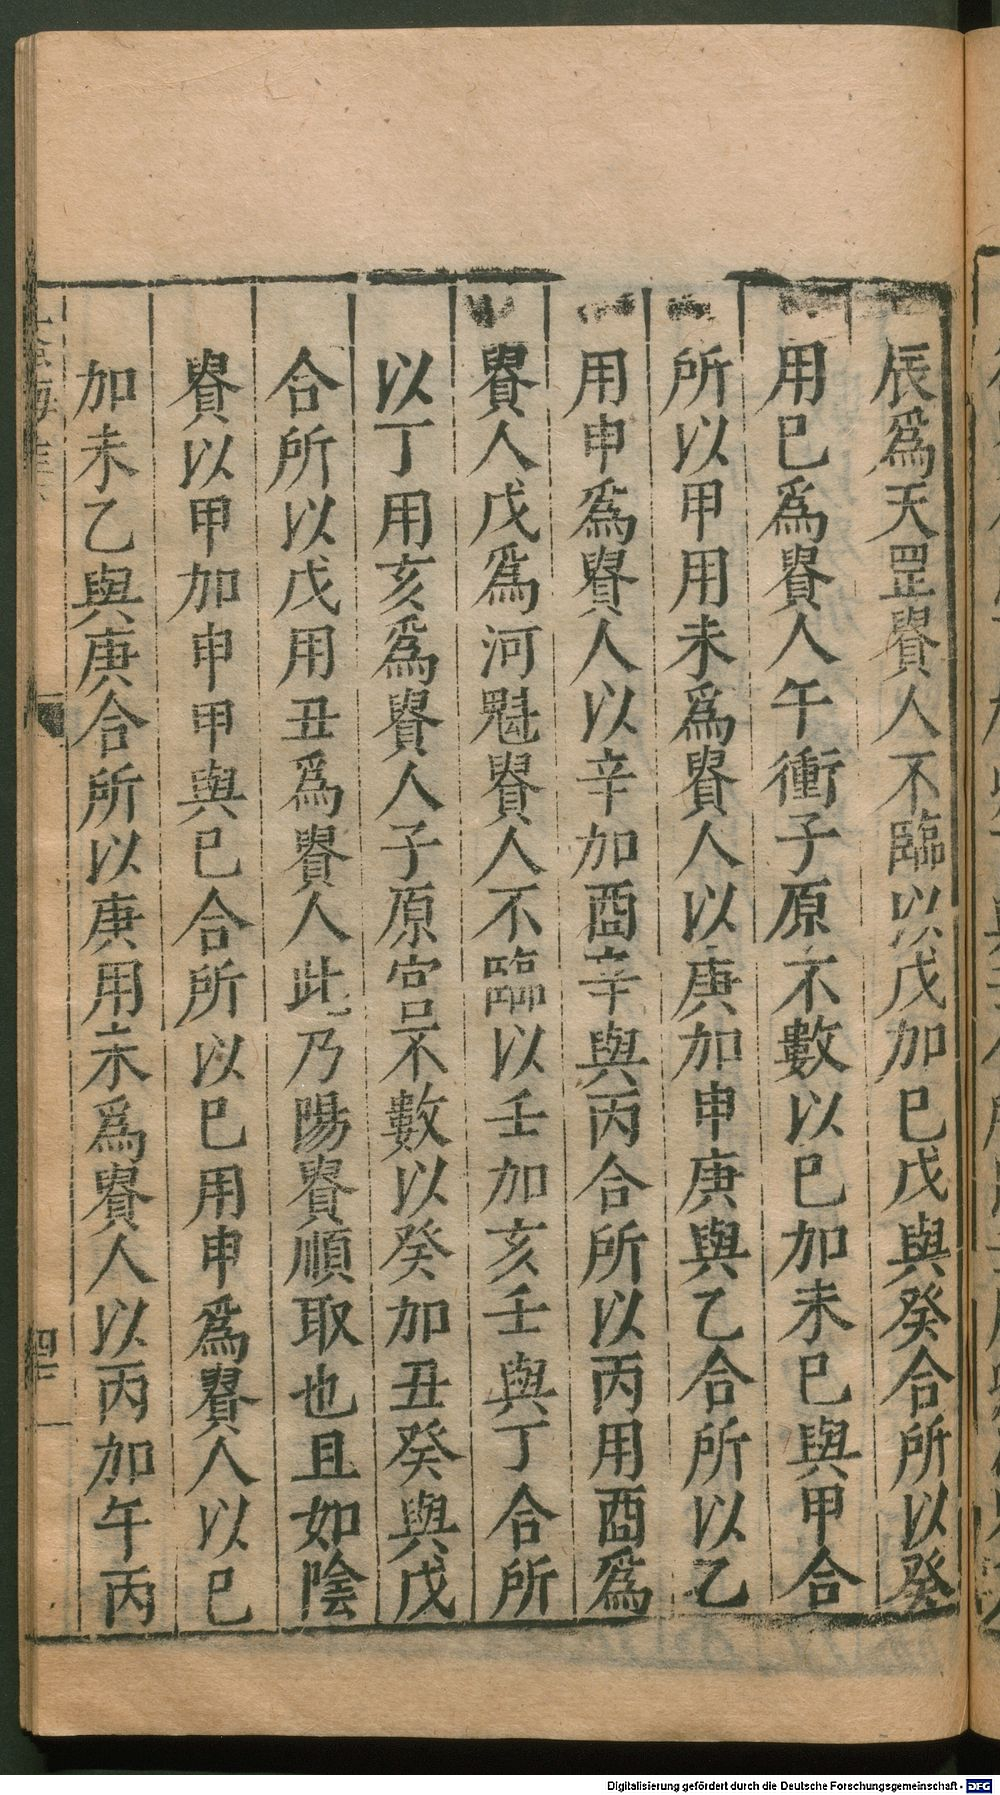 辰爲天罡貴人不臨以戊加巳戊與癸合所以癸
用巳爲貴人午衝子原不數以巳加未巳與甲合
所以甲用未爲貴人以庚加申庚與乙合所以乙
用申爲貴人以辛加酉辛與丙合所以丙用酉爲
貴人戌爲河魁貴人不臨以壬加亥壬與丁合所
以丁用亥爲貴人子原宮不數以癸加丑癸與戊
合所以戊用丑爲貴人此乃陽貴順取也且如陰
貴以甲加申甲與巳合所以巳用申爲貴人以巳
加未乙與庚合所以庚用未爲貴人以丙加午丙
Digitalisierung gefördert durch die Deutsche Forschungsgemeinschaft - DFG